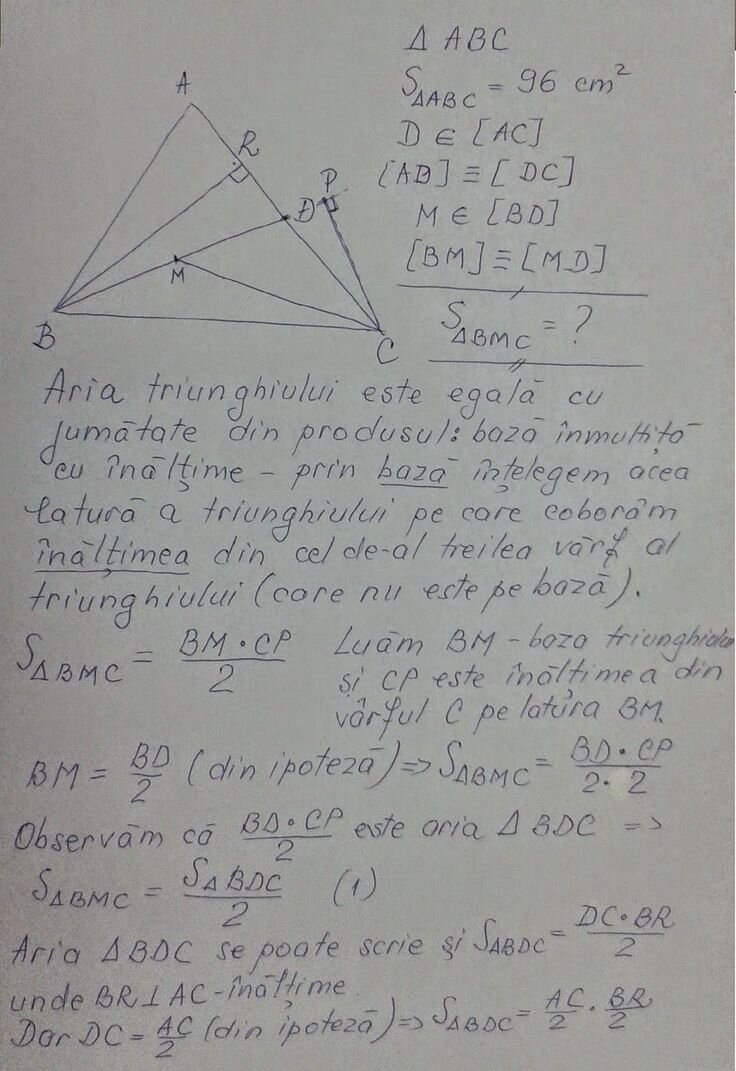 Δ ABC
S_ΔABC = 96 cm²
D ∈ [AC]
[AD] ≡ [DC]
M ∈ [BD]
[BM] ≡ [MD]
S_ΔBMC = ?
A
R
D
P
M
B
C
Aria triunghiului este egală cu
jumătate din produsul: bază înmulțită
cu înălțime - prin bază înțelegem acea
latură a triunghiului pe care coborâm
înălțimea din cel de-al treilea vârf al
triunghiului (care nu este pe bază).
S_ΔBMC = BM · CP / 2
Luăm BM - baza triunghiului
și CP este înălțimea din
vârful C pe latura BM.
BM = BD/2 (din ipoteză) => S_ΔBMC = BD · CP / 2 · 2
Observăm că BD · CP / 2 este aria Δ BDC =>
S_ΔBMC = S_ΔBDC / 2 (1)
Aria ΔBDC se poate scrie și S_ΔBDC = DC · BR / 2
unde BR ⊥ AC - înălțime
Dar DC = AC/2 (din ipoteză) => S_ΔBDC = AC/2 · BR/2